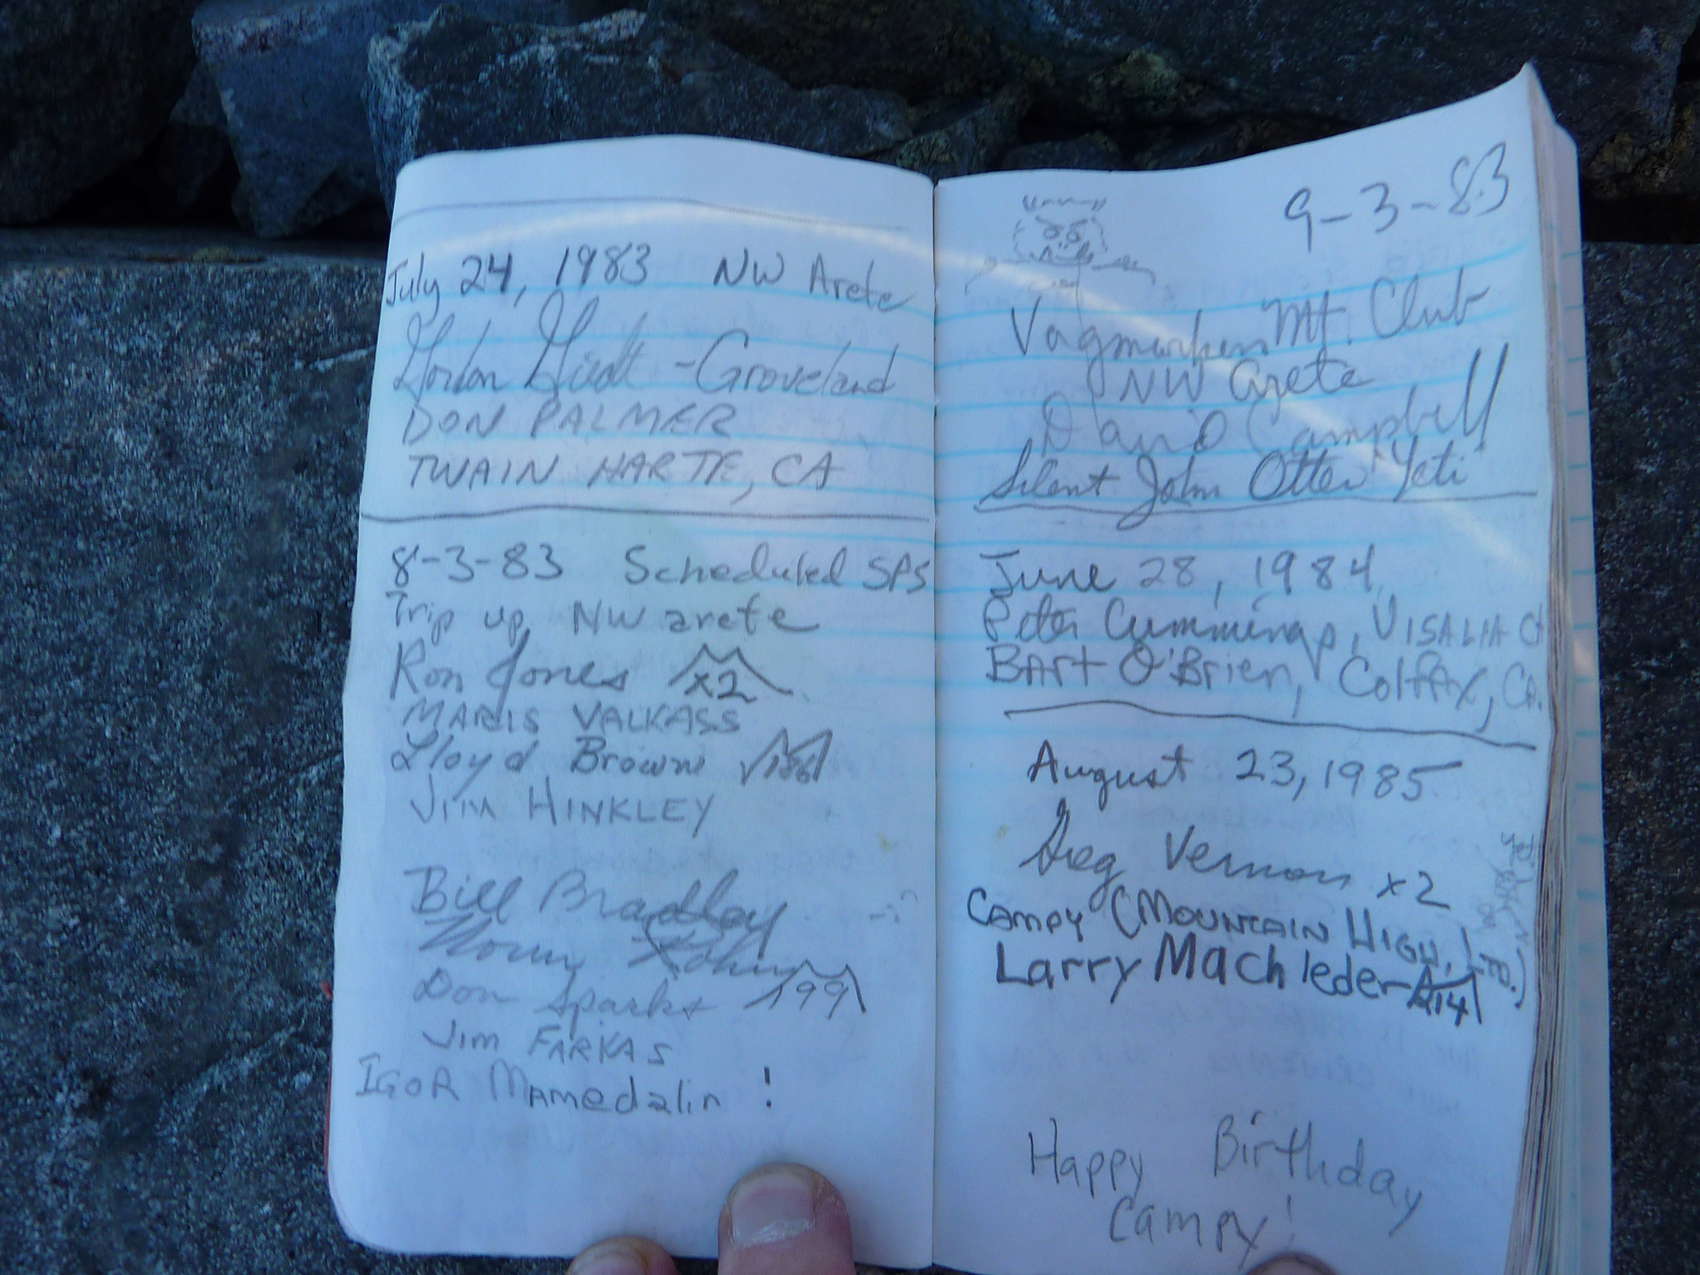 July 24, 1983 NW Arete
Gordon - Groveland
DON PALMER
TWAIN HARTE, CA
8-3-83 Scheduled SPS
Trip up NW arete
Ron Jones x2
MARIS VALKASS
Lloyd Brown
JIM HINKLEY
Bill Bradley
Don Sparks 99
Jim FARKAS
IGOR Mamedalin !
9-3-83
Vagmarken Mt. Club
NW arete
David Campbell
Silent John Otter Yeti
June 28, 1984
Peter Cummings, VISALIA CA
BArt O'Brien, Colfax, CA.
August 23, 1985
Greg Vernon x2
CAMPY (MOUNTAIN HIGH,
Larry Machleder A14
Happy Birthday
Campy!